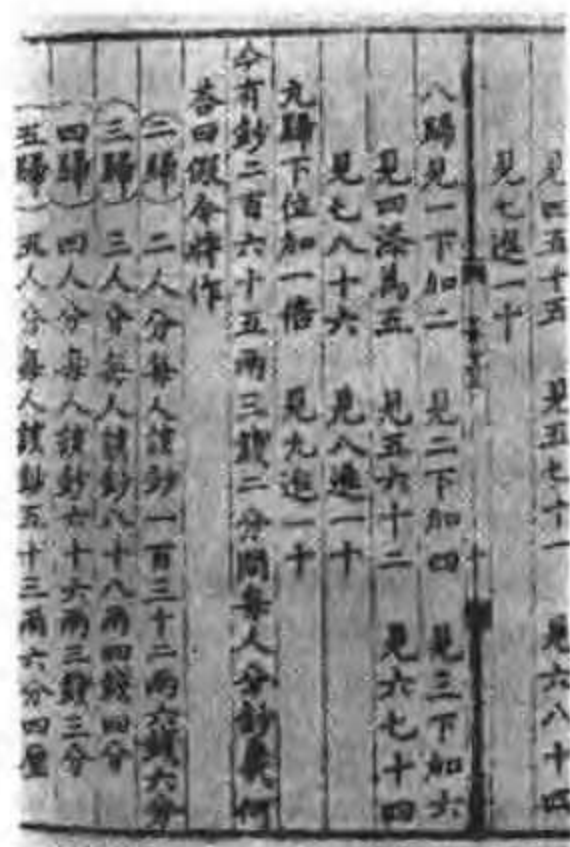 見四五十五 見五七十一 見六八十四
見七進一十
八歸見一下加二 見二下加四 見三下加六
見四添為五 見五六十二 見六七十四
見七八十六 見八進一十
九歸下位加一倍 見九進一十
今有鈔二百六十五兩三錢二分問每人分鈔幾何
荅曰假令將作
二歸 二人分每人該鈔一百三十二兩六錢六分
三歸 三人分每人該鈔八十八兩四錢四分
四歸 四人分每人該鈔六十六兩三錢三分
五歸 五人分每人該鈔五十三兩六分四厘